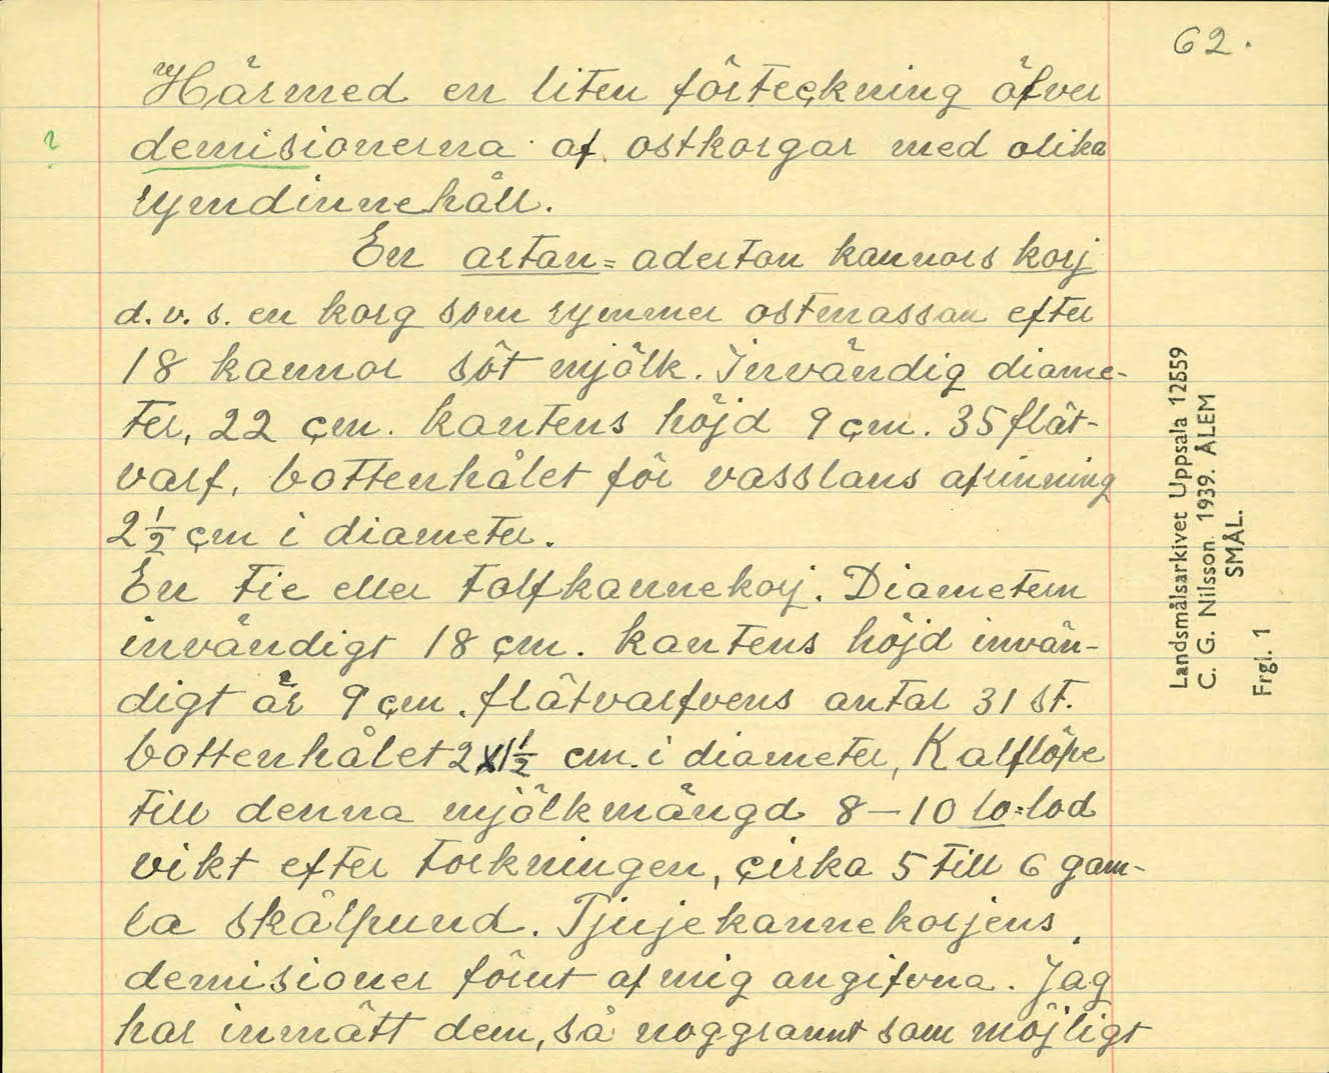 62.
Härmed en liten förteckning öfver
? demisionerna af ostkorgar med olika
rymdinnehåll.
En artan= aderton kannors korj
d.v.s. en korg som rymmer ostmassan efter
18 kannor söt mjölk. Invändig diame-
ter, 22 cm. kantens höjd 9 cm. 35 flät-
varf, bottenhålet för vasslans afrinning
2½ cm i diameter.
En tie eller tolfkannekorj. Diametern
invändigt 18 cm. kantens höjd invän-
digt är 9 cm. flätvarfvens antal 31 st.
bottenhålet 2x1½ cm. i diameter, Kalflöpe
till denna mjölkmängd 8-10 lo=lod
vikt efter torkningen, cirka 5 till 6 gam-
la skålpund. Tjujekannekorjens
demisioner förut af mig angifvna. Jag
har inmätt dem, så noggrannt som möjligt
Landsmålsarkivet Uppsala 12559
C. G. Nilsson. 1939. ÅLEM
SMÅL.
Frgl. 1